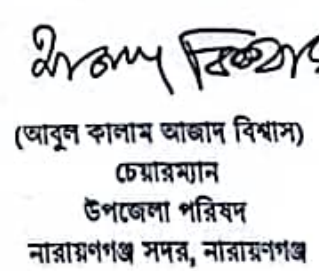 (আবুল কালাম আজাদ বিশ্বাস)
চেয়ারম্যান
উপজেলা পরিষদ
নারায়ণগঞ্জ সদর, নারায়ণগঞ্জ